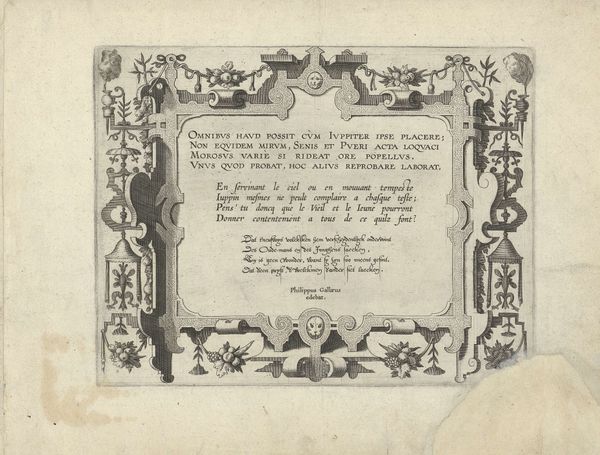 OMNIBVS HAVD POSSIT CVM IVPPITER IPSE PLACERE;
NON EQVIDEM MIRVM, SENIS ET PVERI ACTA LOQVACI
MOROSVS VARIE SI RIDEAT ORE POPELLVS.
VNVS QVOD PROBAT, HOC ALIVS REPROBARE LABORAT.
En serrinant le ciel ou en mouuant tempeste
Iuppin mesmes ne peult complaire a chasque teste;
Pens' tu doncq que le Vieil et le Ieune pourront
Donner contentement a tous de ce quilz font?
Dat
Des Oude-mans en des Jongskens saecken,
Tis geen wonder, want
Dat deen
Philippus Gallæus
edebat.